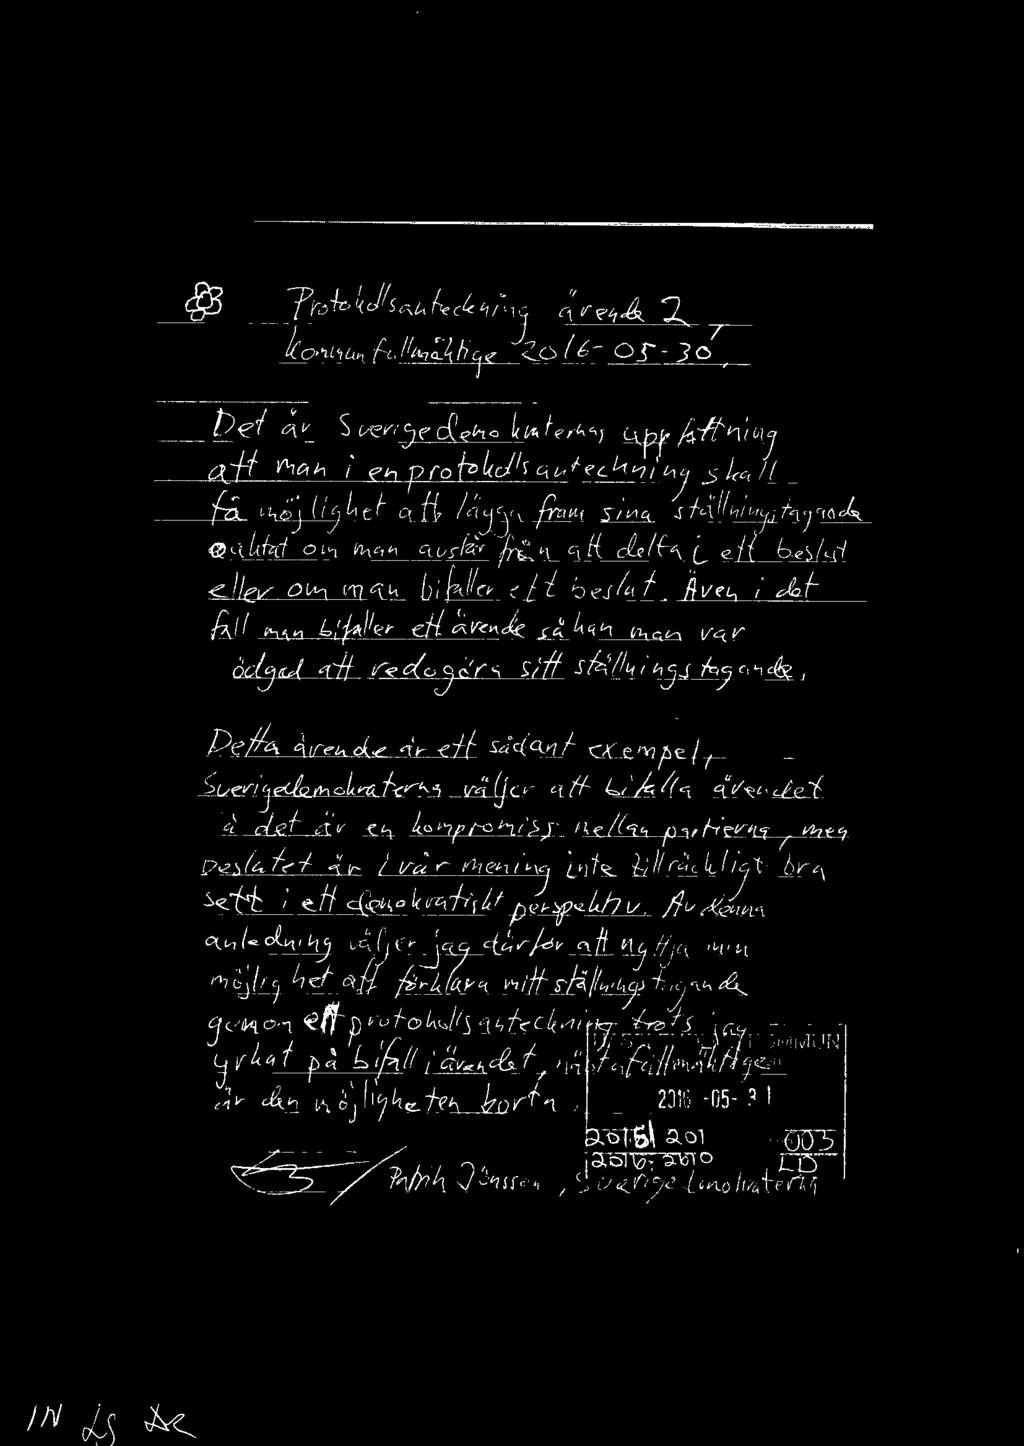 Protokollsanteckning ärende 2,
Kommunfullmäktige 2016-05-30,
Det är Sverigedemokraternas uppfattning
att man i en protokollsanteckning skall
få möjlighet att lägga fram sina ställningstagande
oaktat om man avstår från att delta i ett beslut
eller om man bifaller ett beslut. Även i det
fall man bifaller ett ärende så kan man var
ödgad att redogöra sitt ställningstagande.
Detta ärende är ett sådant exempel,
Sverigedemokraterna väljer att bifalla ärendet
å det är en kompromiss mellan partierna, men
beslutet är i vår mening inte tillräckligt bra
sett i ett demokratiskt perspektiv. Av denna
anledning väljer jag därför att nyttja min
möjlighet att förklara mitt ställningstagande
genom ett protokollsanteckning trots jag
yrkat på bifall i ärendet, nästa fullmäktige
är den möjligheten borta.
KOMMUN
2016 -05- 31
2015/201 003
2016-2610 LD
Patrik Jönsson, Sverigedemokraterna
IN LS